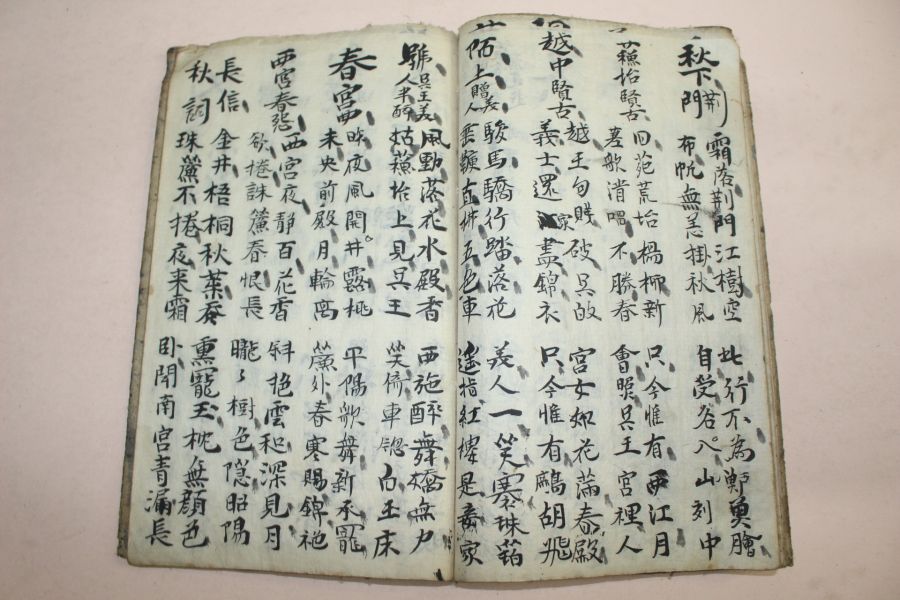 秋下荊門
霜落荊門江樹空 此行不為鱸魚膾
布帆無恙掛秋風 自受名入山刻中
蘇坮賢古
旧苑荒坮楊柳新 只今惟有西江月
菱歌淸唱不勝春 會照吳王宮裡人
越中賢古
越王勾賤破吳敀 宮女如花滿春殿
義士還家盡錦衣 只今惟有鷓胡飛
陌上贈美人
駿馬驕行踏落花 美人一笑褰珠箔
垂鞭直拂五色車 遙指紅樓是妾家
號吳王美人半醉
風動落花水殿香 西施醉舞嬌無力
姑蘇坮上見吳王 笑倚車窓白玉床
春宮
昨夜風開井露桃 平陽歌舞新承寵
未央前殿月輪高 簾外春寒賜錦袍
西宮春怨
西宮夜靜百花香 斜抱雲和深見月
欲捲誅簾春恨長 朧〻樹色隱昭陽
長信秋詞
金井梧桐秋葉黃 熏寵玉枕無顔色
珠簾不捲夜來霜 臥聞南宮青漏長